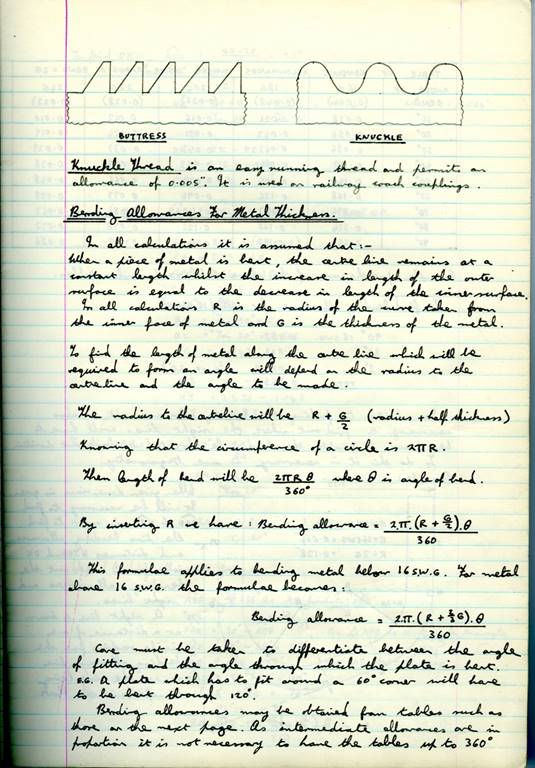 BUTTRESS
KNUCKLE
Knuckle Thread is an easy running thread and permits an
allowance of 0.005". It is used on railway coach couplings.
Bending Allowances For Metal Thickness.
In all calculations it is assumed that:-
When a piece of metal is bent, the centre line remains at a
constant length whilst the increase in length of the outer
surface is equal to the decrease in length of the inner surface.
In all calculations R is the radius of the curve taken from
the inner face of metal and G is the thickness of the metal.
To find the length of metal along the centre line which will be
required to form an angle will depend on the radius to the
centreline and the angle to be made.
The radius to the centreline will be R + G/2 (radius + half thickness)
Knowing that the circumference of a circle is 2πR.
Then length of bend will be 2πRθ/360° where θ is angle of bend.
By inserting R we have: Bending allowance = 2π.(R + G/2).θ/360
This formulae applies to bending metal below 16 S.W.G. For metal
above 16 S.W.G. the formulae becomes:
Bending allowance = 2π.(R + 2/3G).θ/360
Care must be taken to differentiate between the angle
of fitting and the angle through which the plate is bent.
E.G. A plate which has to fit around a 60° corner will have
to be bent through 120°.
Bending allowances may be obtained from tables such as
those on the next page. As intermediate allowances are in
proportion it is not necessary to have the tables up to 360°